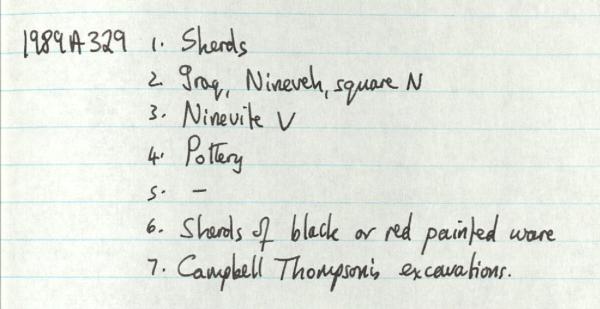 1989A329 1. Sherds
2. Iraq, Nineveh, square N
3. Ninevite V
4. Pottery
5. –
6. Sherds of black or red painted ware
7. Campbell Thompson's excavations.